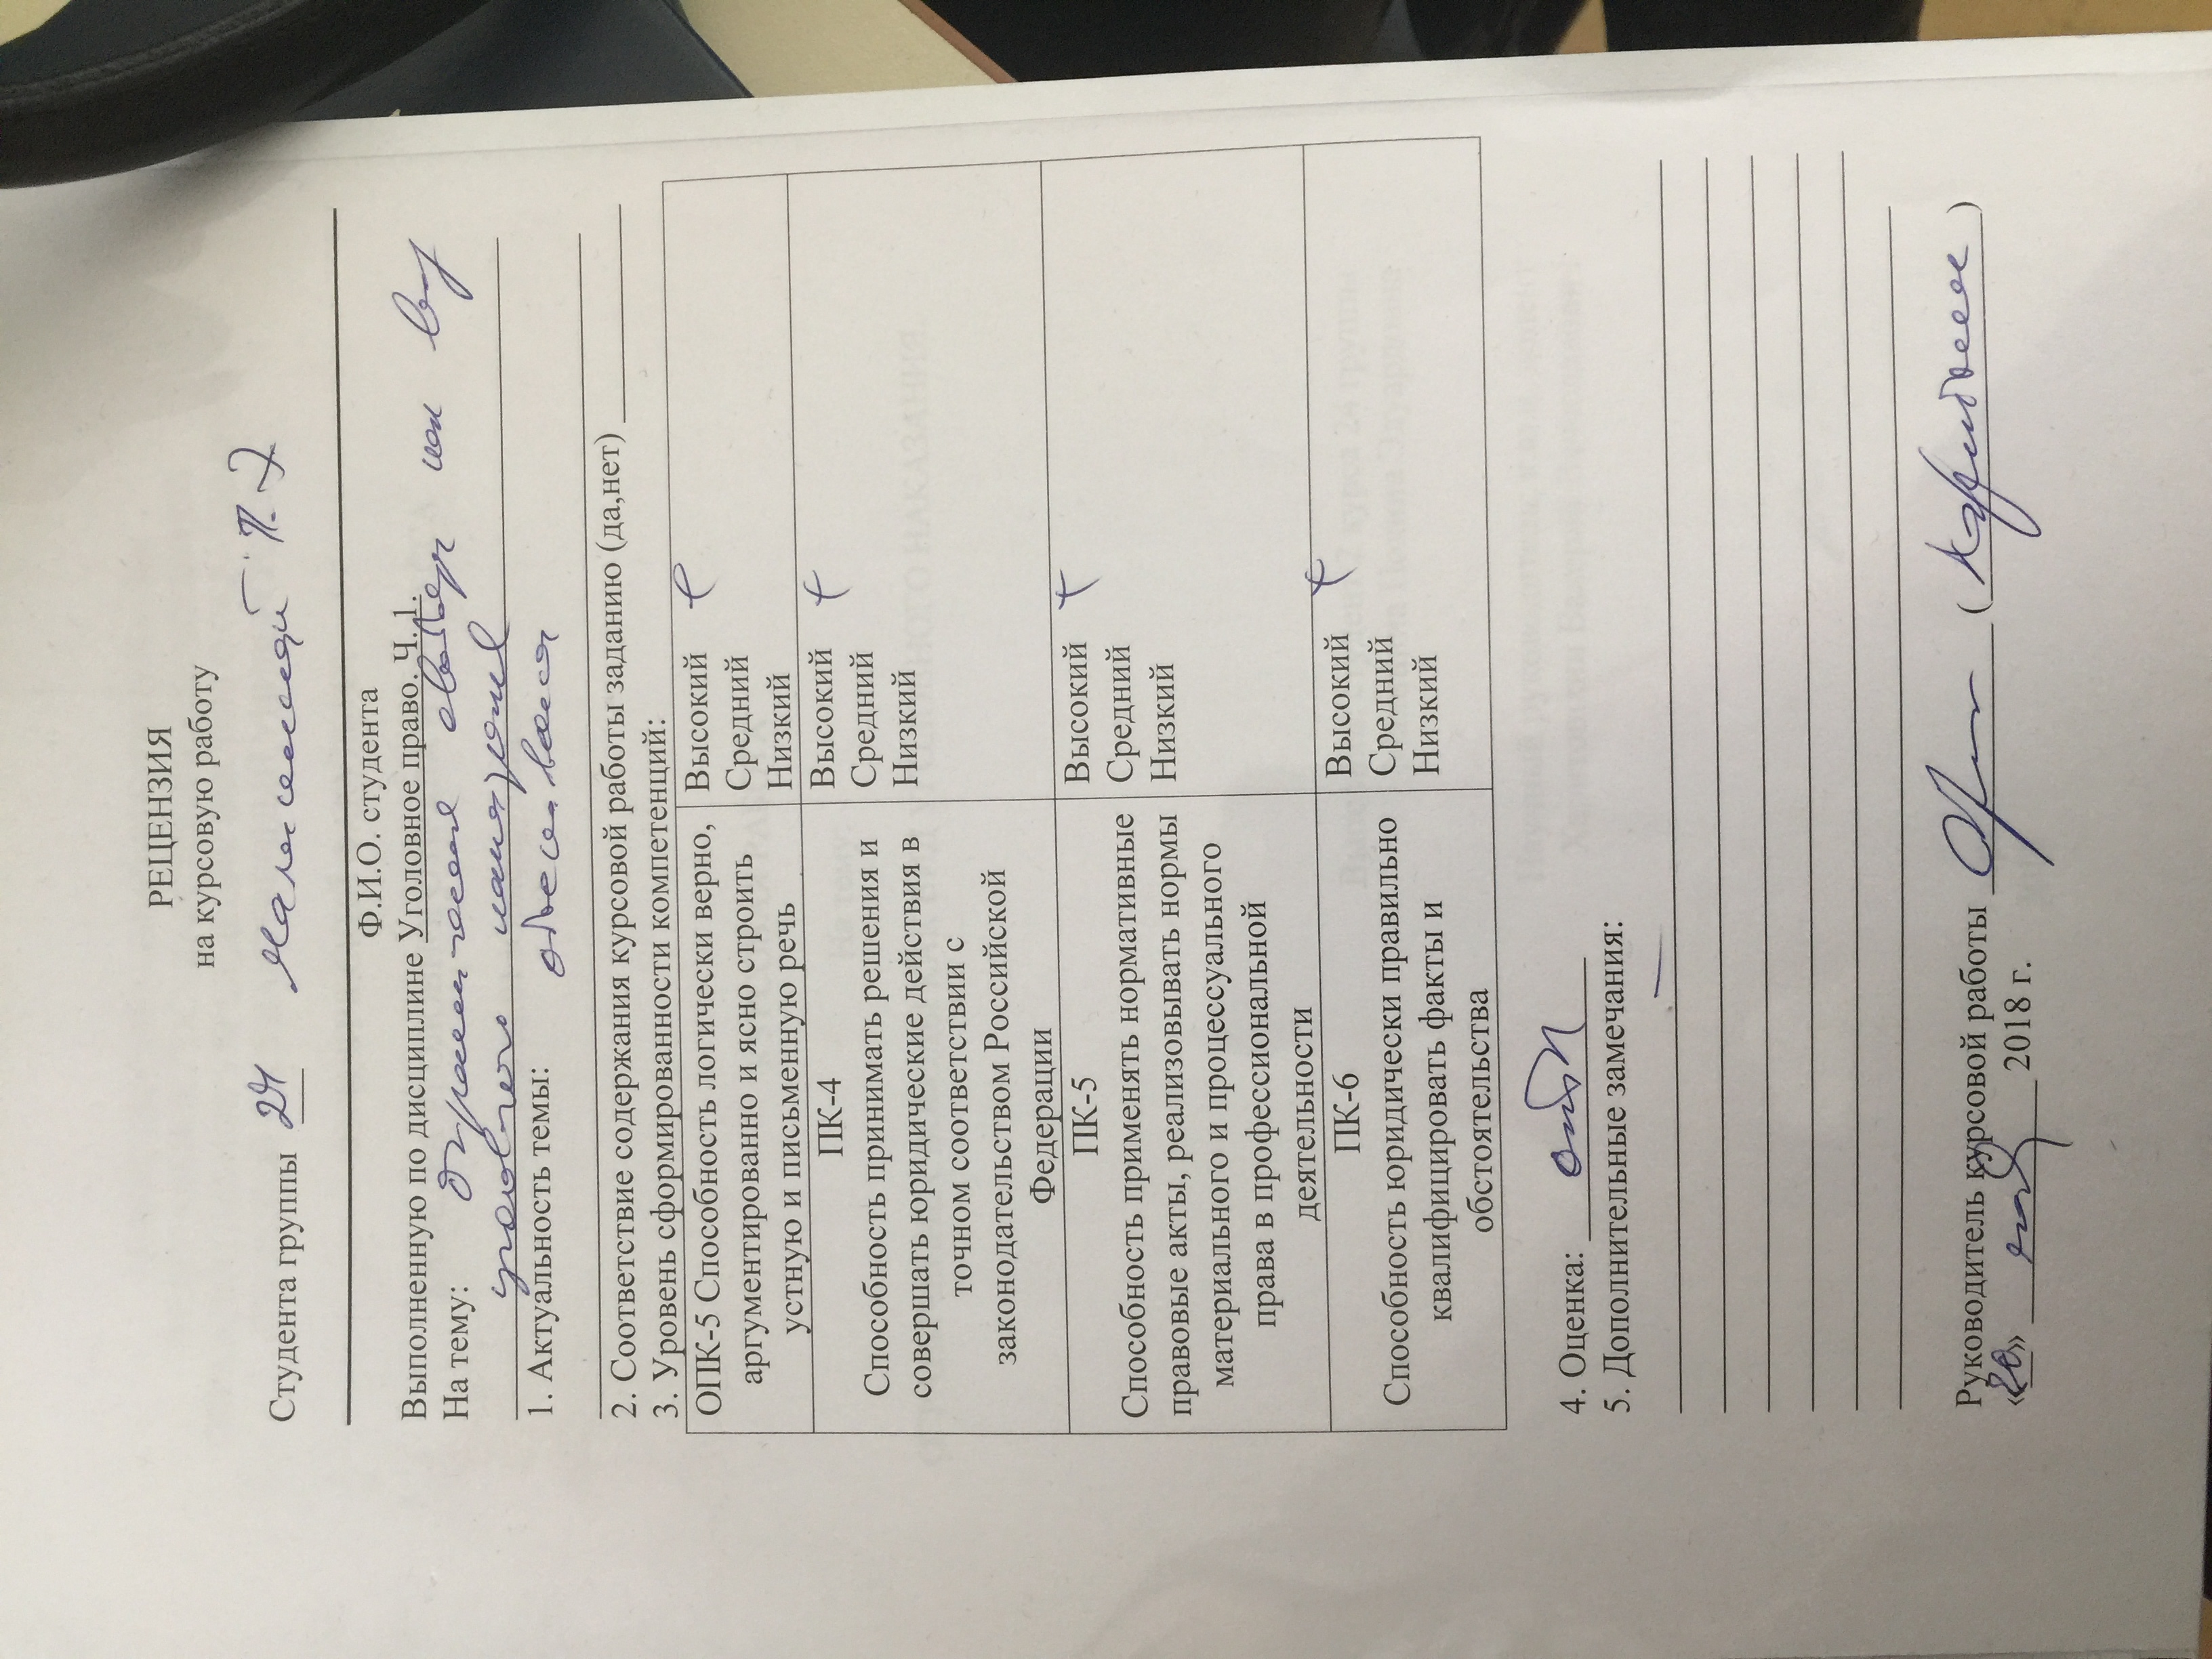 РЕЦЕНЗИЯ
на курсовую работу
Студента группы 24 П.Э
Ф.И.О. студента
Выполненную по дисциплине Уголовное право. Ч. 1.
На тему: Ограничение свободы как вид
уголовного наказания
1. Актуальность темы: обоснована
2. Соответствие содержания курсовой работы заданию (да,нет)
3. Уровень сформированности компетенций:
ОПК-5 Способность логически верно, Высокий +
аргументированно и ясно строить Средний
устную и письменную речь Низкий
ПК-4 Высокий +
Способность принимать решения и Средний
совершать юридические действия в Низкий
точном соответствии с
законодательством Российской
Федерации
ПК-5 Высокий +
Способность применять нормативные Средний
правовые акты, реализовывать нормы Низкий
материального и процессуального
права в профессиональной
деятельности
ПК-6 Высокий +
Способность юридически правильно Средний
квалифицировать факты и Низкий
обстоятельства
4. Оценка: отл
5. Дополнительные замечания:
—
Руководитель курсовой работы
«20» 2018 г.